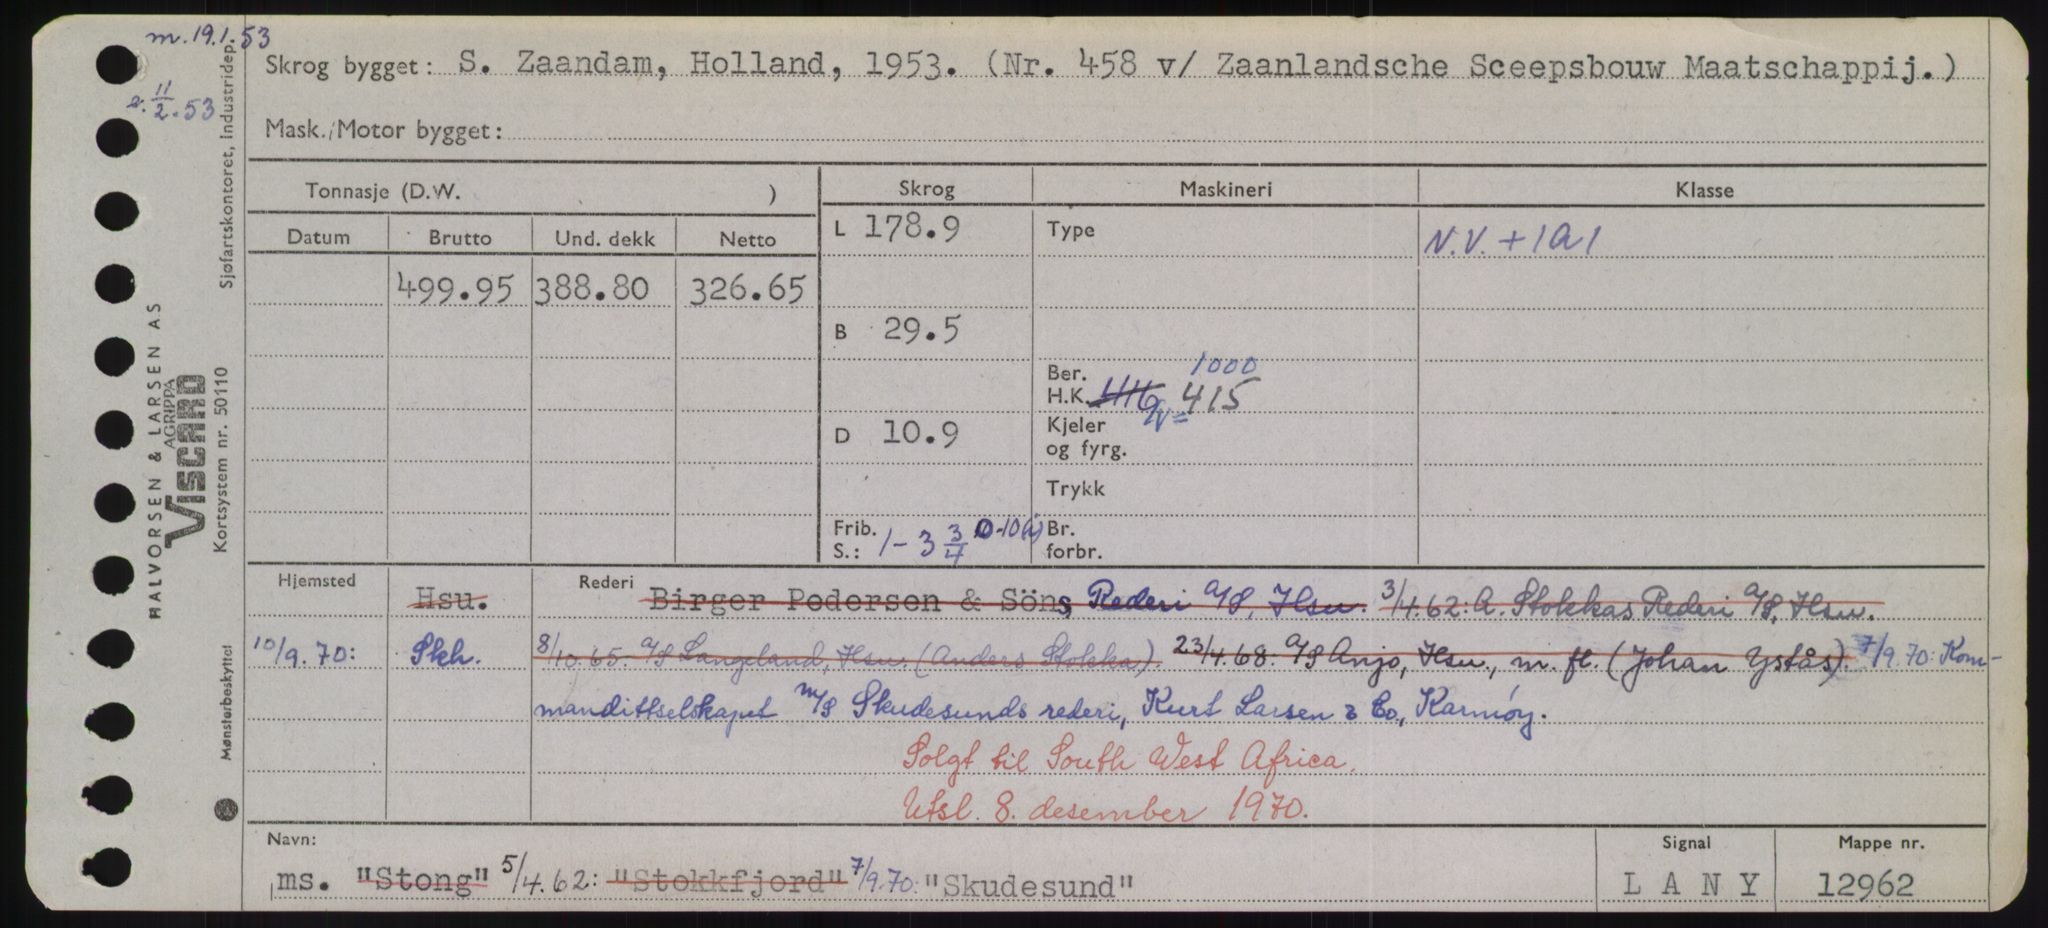 m. 19.1.53
11/2.53
Skrog bygget: S. Zaandam, Holland, 1953. (Nr. 458 v/ Zaanlandsche Sceepsbouw Maatschappij.)
Mask./Motor bygget:
Tonnasje (D.W. ) Skrog Maskineri Klasse
Datum Brutto Und. dekk Netto L 178.9 Type N.V. + 1A1
499.95 388.80 326.65
B 29.5
Ber. 1000
H.K. 416 415
D 10.9 Kjeler
og fyrg.
Trykk
Frib. Br.
S.: 1 - 3 3/4 0-10(i) forbr.
Hjemsted Hsu. Rederi Birger Pedersen & Söns Rederi A/S, Hsu. 3/4.62: A. Stokkas Rederi A/S, Hsu.
10/9.70: Skh. 8/10.65. A/S Langeland, Hsu. (Anders Stokka). 23/4.68. A/S Anjo, Hsu., m. fl. (Johan Ystås). 7/9.70: Kom-
mandittselskapet M/S Skudesunds rederi, Kurt Larsen & Co., Karmöy.
Solgt til South West Africa.
Utsl. 8. desember 1970.
Navn: Signal Mappe nr.
ms. "Stong" 5/4.62: "Stokkfjord" 7/9.70: "Skudesund" L A N Y 12962
HALVORSEN & LARSEN A.S
AGRIPPA
VISCARD
Kortsystem nr. 50110
Sjøfartskontoret, Industridep.
Mønsterbeskyttet